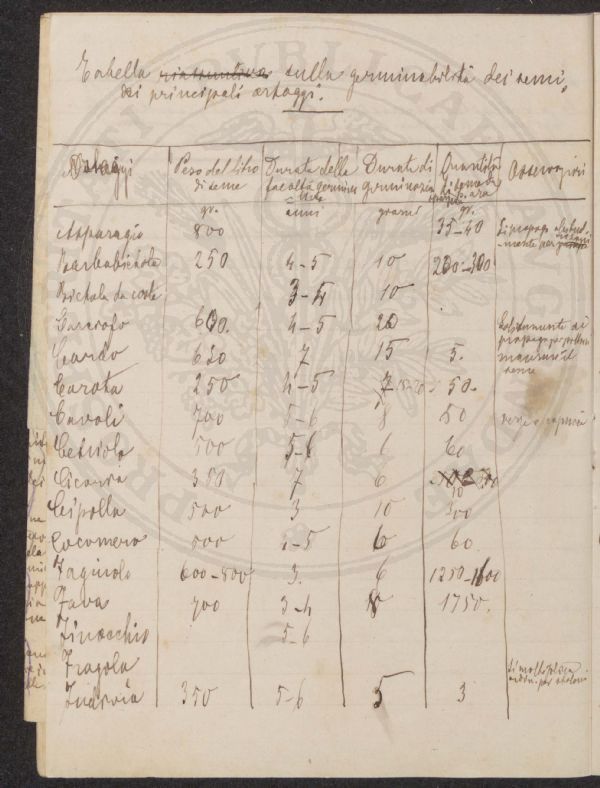 Tabella riassuntiva sulla germinabilità dei semi,
dei principali ortaggi.
Ortaggi Peso del litro Durata della Durata di Quantità Osservazioni
di seme facoltà germina germinazione di seme
tiva per ara
gr. anni giorni gr.
Asparagio 800 35-40 Si propaga
mente per
Barbabietola 250 4-5 10 200-300
Bietola da coste 3-4 10
Carciofo 600. 4-5 20 Solitamente si
propaga per polloni
Cardo 630 7 15 5. macerare il
seme
Carota 250 4-5 15-20 50.
Cavoli 700 5-6 8 50 verze e cappucci
Cetriolo 500 5-6 6 60
Cicoria 350 7 6
10
Cipolla 500 3 10 300
Cocomero 500 4-5 6 60.
Fagiuolo 600-800 3. 6 1250-1600
Fava 700 3-4 8 1750.
Finocchio 5-6
Fragola Si moltiplica
per stoloni
Indivia 350 5-6 5 3